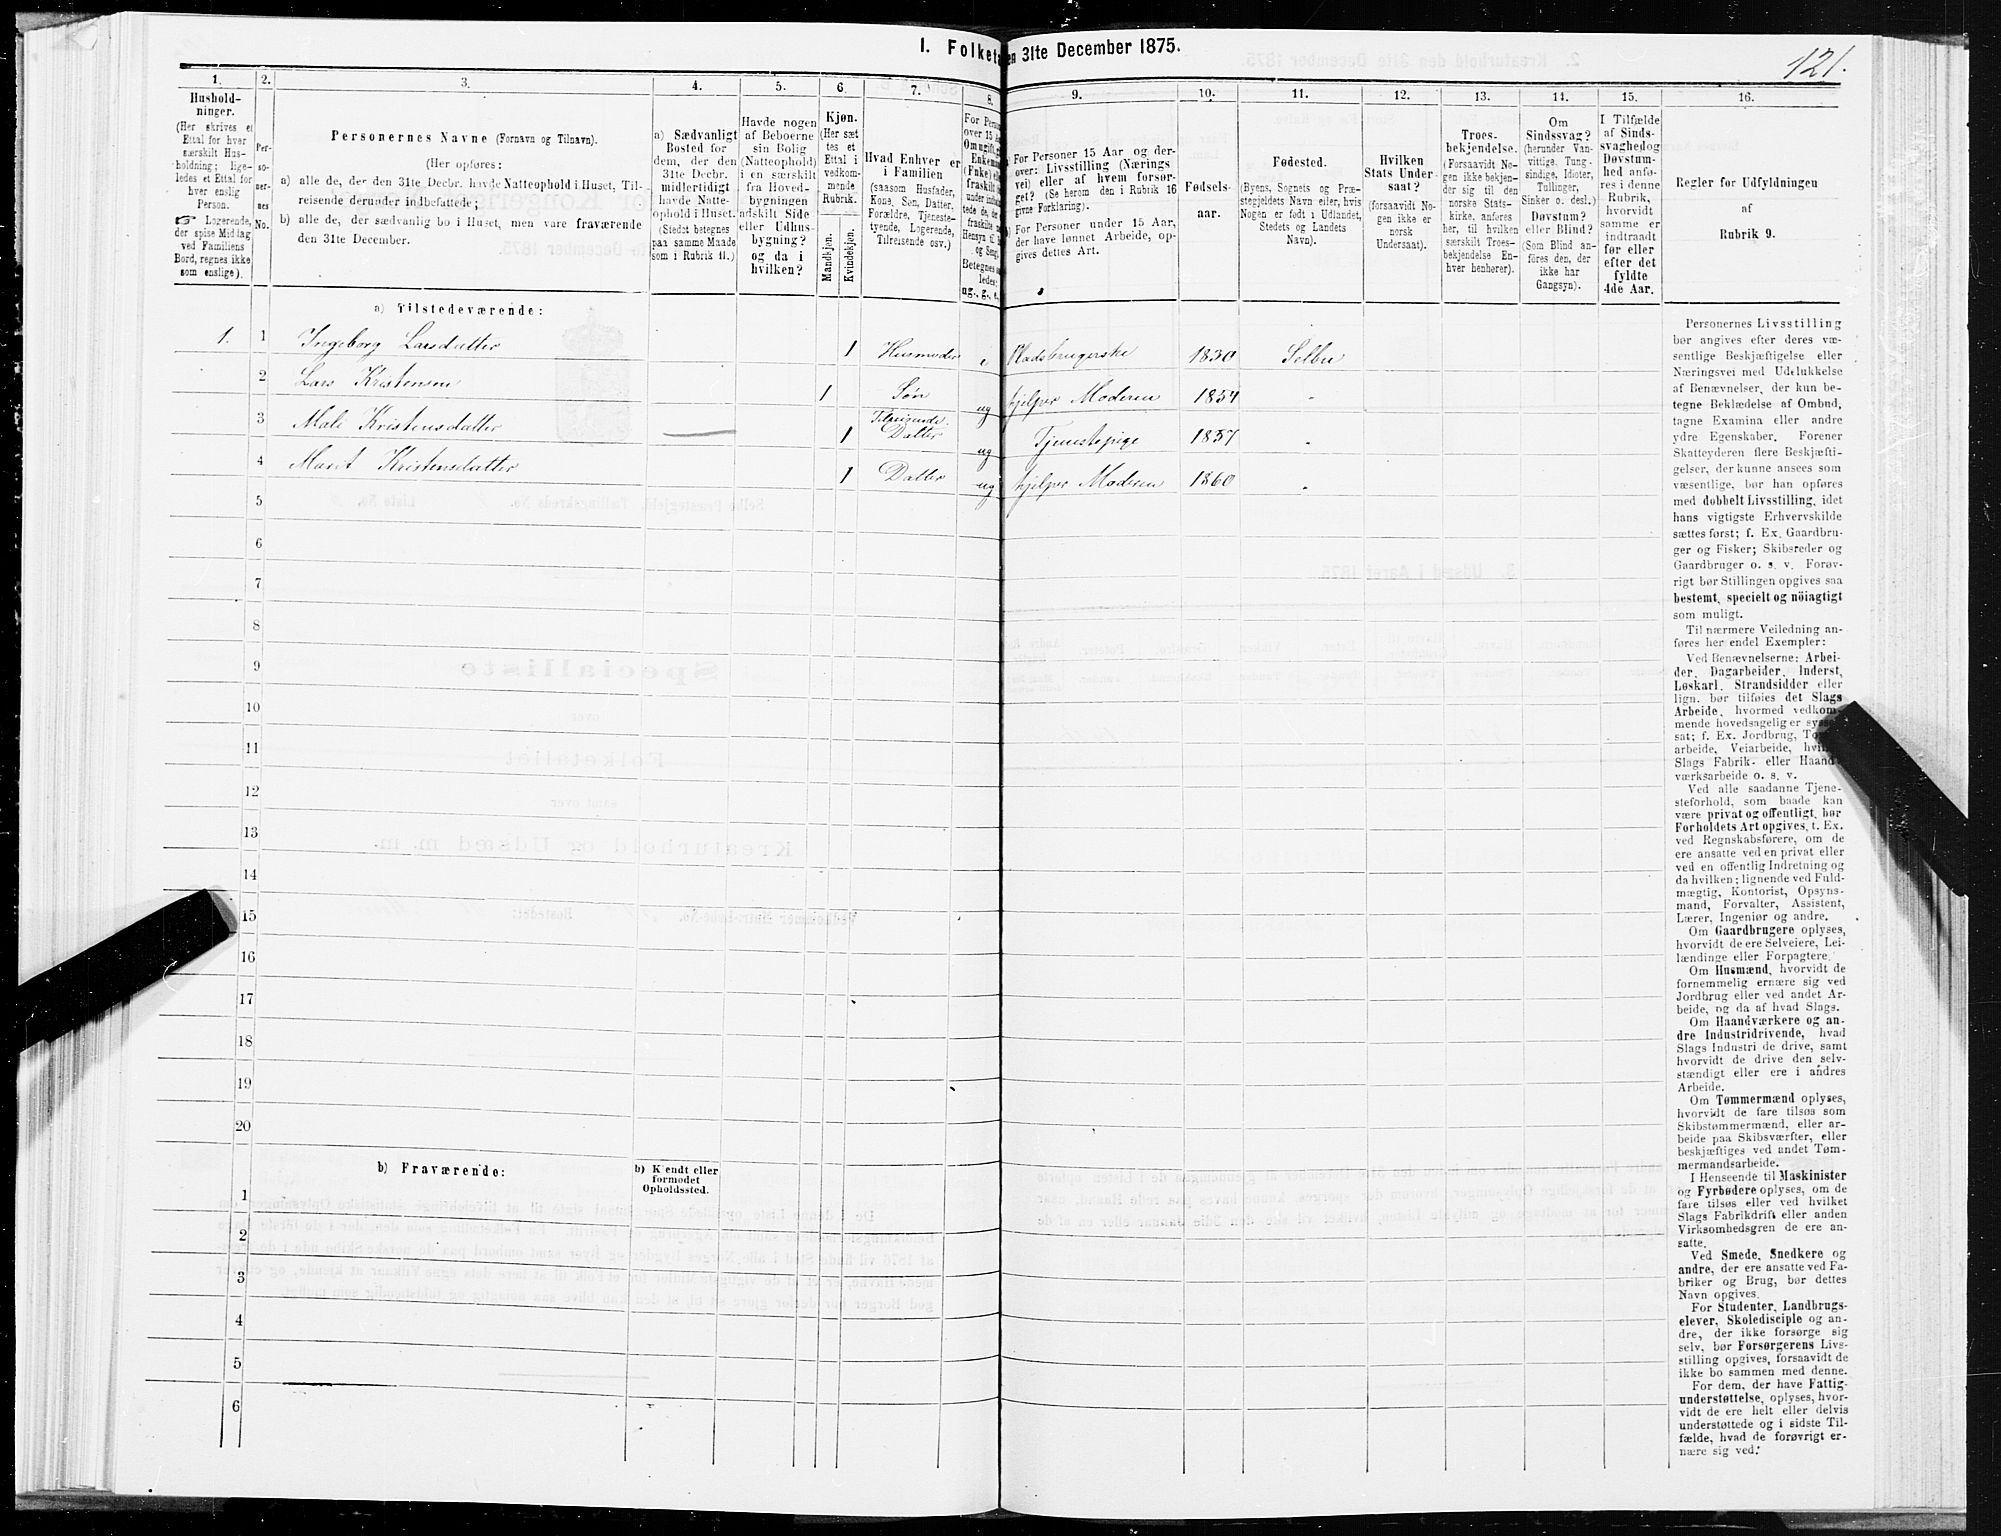 I. Folketa en 31te December 1875.
121.
1. 2. 3. 4. 5. 6. 7. 8. 9. 10. 11. 12. 13. 14. 15. 16.
Hushold-
ninger.
(Her skrives et
Ettal for hver
særskilt Hus-
holdning; lige-
ledes et Ettal for
hver enslig
Person.
☞ Logerende,
der spise Middag
ved Familiens
Bord, regnes ikke
som enslige).
Per-
so-
ner-
nes
No.
Personernes Navne (Fornavn og Tilnavn).
(Her opføres:
a) alle de, der den 31te Decbr. havde Natteophold i Huset, Til-
reisende derunder indbefattede;
b) alle de, der sædvanlig bo i Huset, men vare fraværende
den 31te December.
a) Sædvanligt
Bosted for
dem, der den
31te Decbr.
midlertidigt
havde Natte-
ophold i Huset.
(Stedet betegnes
paa samme Maade
som i Rubrik 11.)
Havde nogen
af Beboerne
sin Bolig
(Natteophold)
i en særskilt
fra Hoved-
bygningen
adskilt Side
eller Udhus-
bygning?
og da i
hvilken?
Kjøn.
(Her sæt-
tes et
Ettal i
vedkom-
mende
Rubrik.
Mandkjøn.
Kvindekjøn.
Hvad Enhver er
i Familien
(saasom Husfader,
Kone, Søn, Datter,
Forældre, Tjeneste-
tyende, Logerende,
Tilreisende osv.)
For Person
over 15 Aar
Om ugift, g
Enkem
(Enke) el
fraskilt
ag., g., e.
a) For Personer 15 Aar og der-
over: Livsstilling (Nærings
vei) eller af hvem forsør-
get? (Se herom den i Rubrik 16
givne Forklaring).
b) For Personer under 15 Aar,
der have lønnet Arbeide, op-
gives dettes Art.
Fødsels-
aar.
Fødested.
(Byens, Sognets og Præ-
stegjeldets Navn eller, hvis
Nogen er født i Udlandet,
Stedets og Landets
Navn).
Hvilken
Stats Under-
saat?
(forsaavidt No-
gen ikke er
norsk
Undersaat).
Troes-
bekjendelse.
(Forsaavidt No-
gen ikke bekjen-
der sig til den
norske Stats-
kirke, anføres
her, til hvilken
særskilt Troes-
bekjendelse En-
hver henhører).
Om
Sindssvag?
(herunder Van-
vittige, Tung-
sindige, Idioter,
Tullinger,
Sinker o. desl.)
Døvstum?
eller Blind?
(Som Blind an-
føres den, der
ikke har
Gangsyn).
I Tilfælde
af Sinds-
svaghed og
Døvstum-
hed anfø-
res i denne
Rubrik,
hvorvidt
samme er
indtraadt
før eller
efter det
fyldte
4de Aar.
Regler for Udfyldningen
af
Rubrik 9.
a) Tilstedeværende:
1. 1 Ingeborg Larsdatter 1 Husmoder e Pladsbrugerske 1830 Selbu
2 Lars Kristensen 1 Søn ug hjelper Moderen 1854 "
3 Mali Kristensdatter 1 Tilreisende. Datter ug Tjenestepige 1857 "
4 Marit Kristensdatter 1 Datter ug hjelper Moderen 1860 "
5
6
7
8
9
10
11
12
13
14
15
16
17
18
19
20
b) Fraværende:
b) Kjendt eller
formodet
Opholdssted.
1
2
3
4
5
6
Personernes Livsstilling
bør angives efter deres væ-
sentlige Beskjæftigelse eller
Næringsvei med Udelukkelse
af Benævnelser, der kun be-
tegne Beklædelse af Ombud,
tagne Examina eller andre
ydre Egenskaber. Forener
Skatteyderen flere Beskjæfti-
gelser, der kunne ansees som
væsentlige, bør han opføres
med dobbelt Livsstilling, idet
hans vigtigste Erhvervskilde
sættes først; f. Ex. Gaardbru-
ger og Fisker; Skibsreder og
Gaardbruger o. s. v. Forøv-
rigt bør Stillingen opgives saa
bestemt, specielt og nöiagtigt
som muligt.
Til nærmere Veiledning an-
føres her endel Exempler:
Ved Benævnelserne: Arbei-
der, Dagarbeider, Inderst,
Løskarl, Strandsidder eller
lign. bør tilføies det Slags
Arbeide, hvormed vedkom-
mende hovedsagelig er syssel
sat; f. Ex. Jordbrug, To
arbeide, Veiarbeide, hvi
Slags Fabrik- eller Haand-
værksarbeide o. s. v.
Ved alle saadanne Tjene-
steforhold, som baade kan
være privat og offentligt, bør
Forholdets Art opgives, t. Ex.
ved Regnskabsførere, om de
ere ansatte ved en privat eller
ved en offentlig Indretning og
da hvilken; lignende ved Fuld-
mægtig, Kontorist, Opsyns-
mand, Forvalter, Assistent,
Lærer, Ingeniør og andre.
Om Gaardbrugere oplyses,
hvorvidt de ere Selveiere, Lei-
lændinge eller Forpagtere.
Om Husmænd, hvorvidt de
fornemmelig ernære sig ved
Jordbrug eller ved andet Ar-
beide, og da af hvad Slags.
Om Haandværkere og an-
dre Industridrivende, hvad
Slags Industri de drive, samt
hvorvidt de drive den selv-
stændigt eller ere i andres
Arbeide.
Om Tømmermænd oplyses,
hvorvidt de fare tilsøs som
Skibstømmermænd, eller ar-
beide paa Skibsværfter, eller
beskjæftiges ved andet Tøm-
mermandsarbeide.
I Henseende til Maskinister
og Fyrbødere oplyses, om de
fare tilsøs eller ved hvilket
Slags Fabrikdrift eller anden
Virksomhedsgren de ere an-
satte.
Ved Smede, Snedkere og
andre, der ere ansatte ved Fa-
briker og Brug, bør dettes
Navn opgives.
For Studenter, Landbrugs-
elever, Skoledisciple og an-
dre, der ikke forsørge sig
selv, bør Forsørgerens Livs-
stilling opgives, forsaavidt de
ikke bo sammen med denne.
For dem, der have Fattig-
understøttelse, oplyses, hvor-
vidt de ere helt eller delvis
understøttede og i sidste Til-
fælde, hvad de forøvrigt er-
nære sig ved.